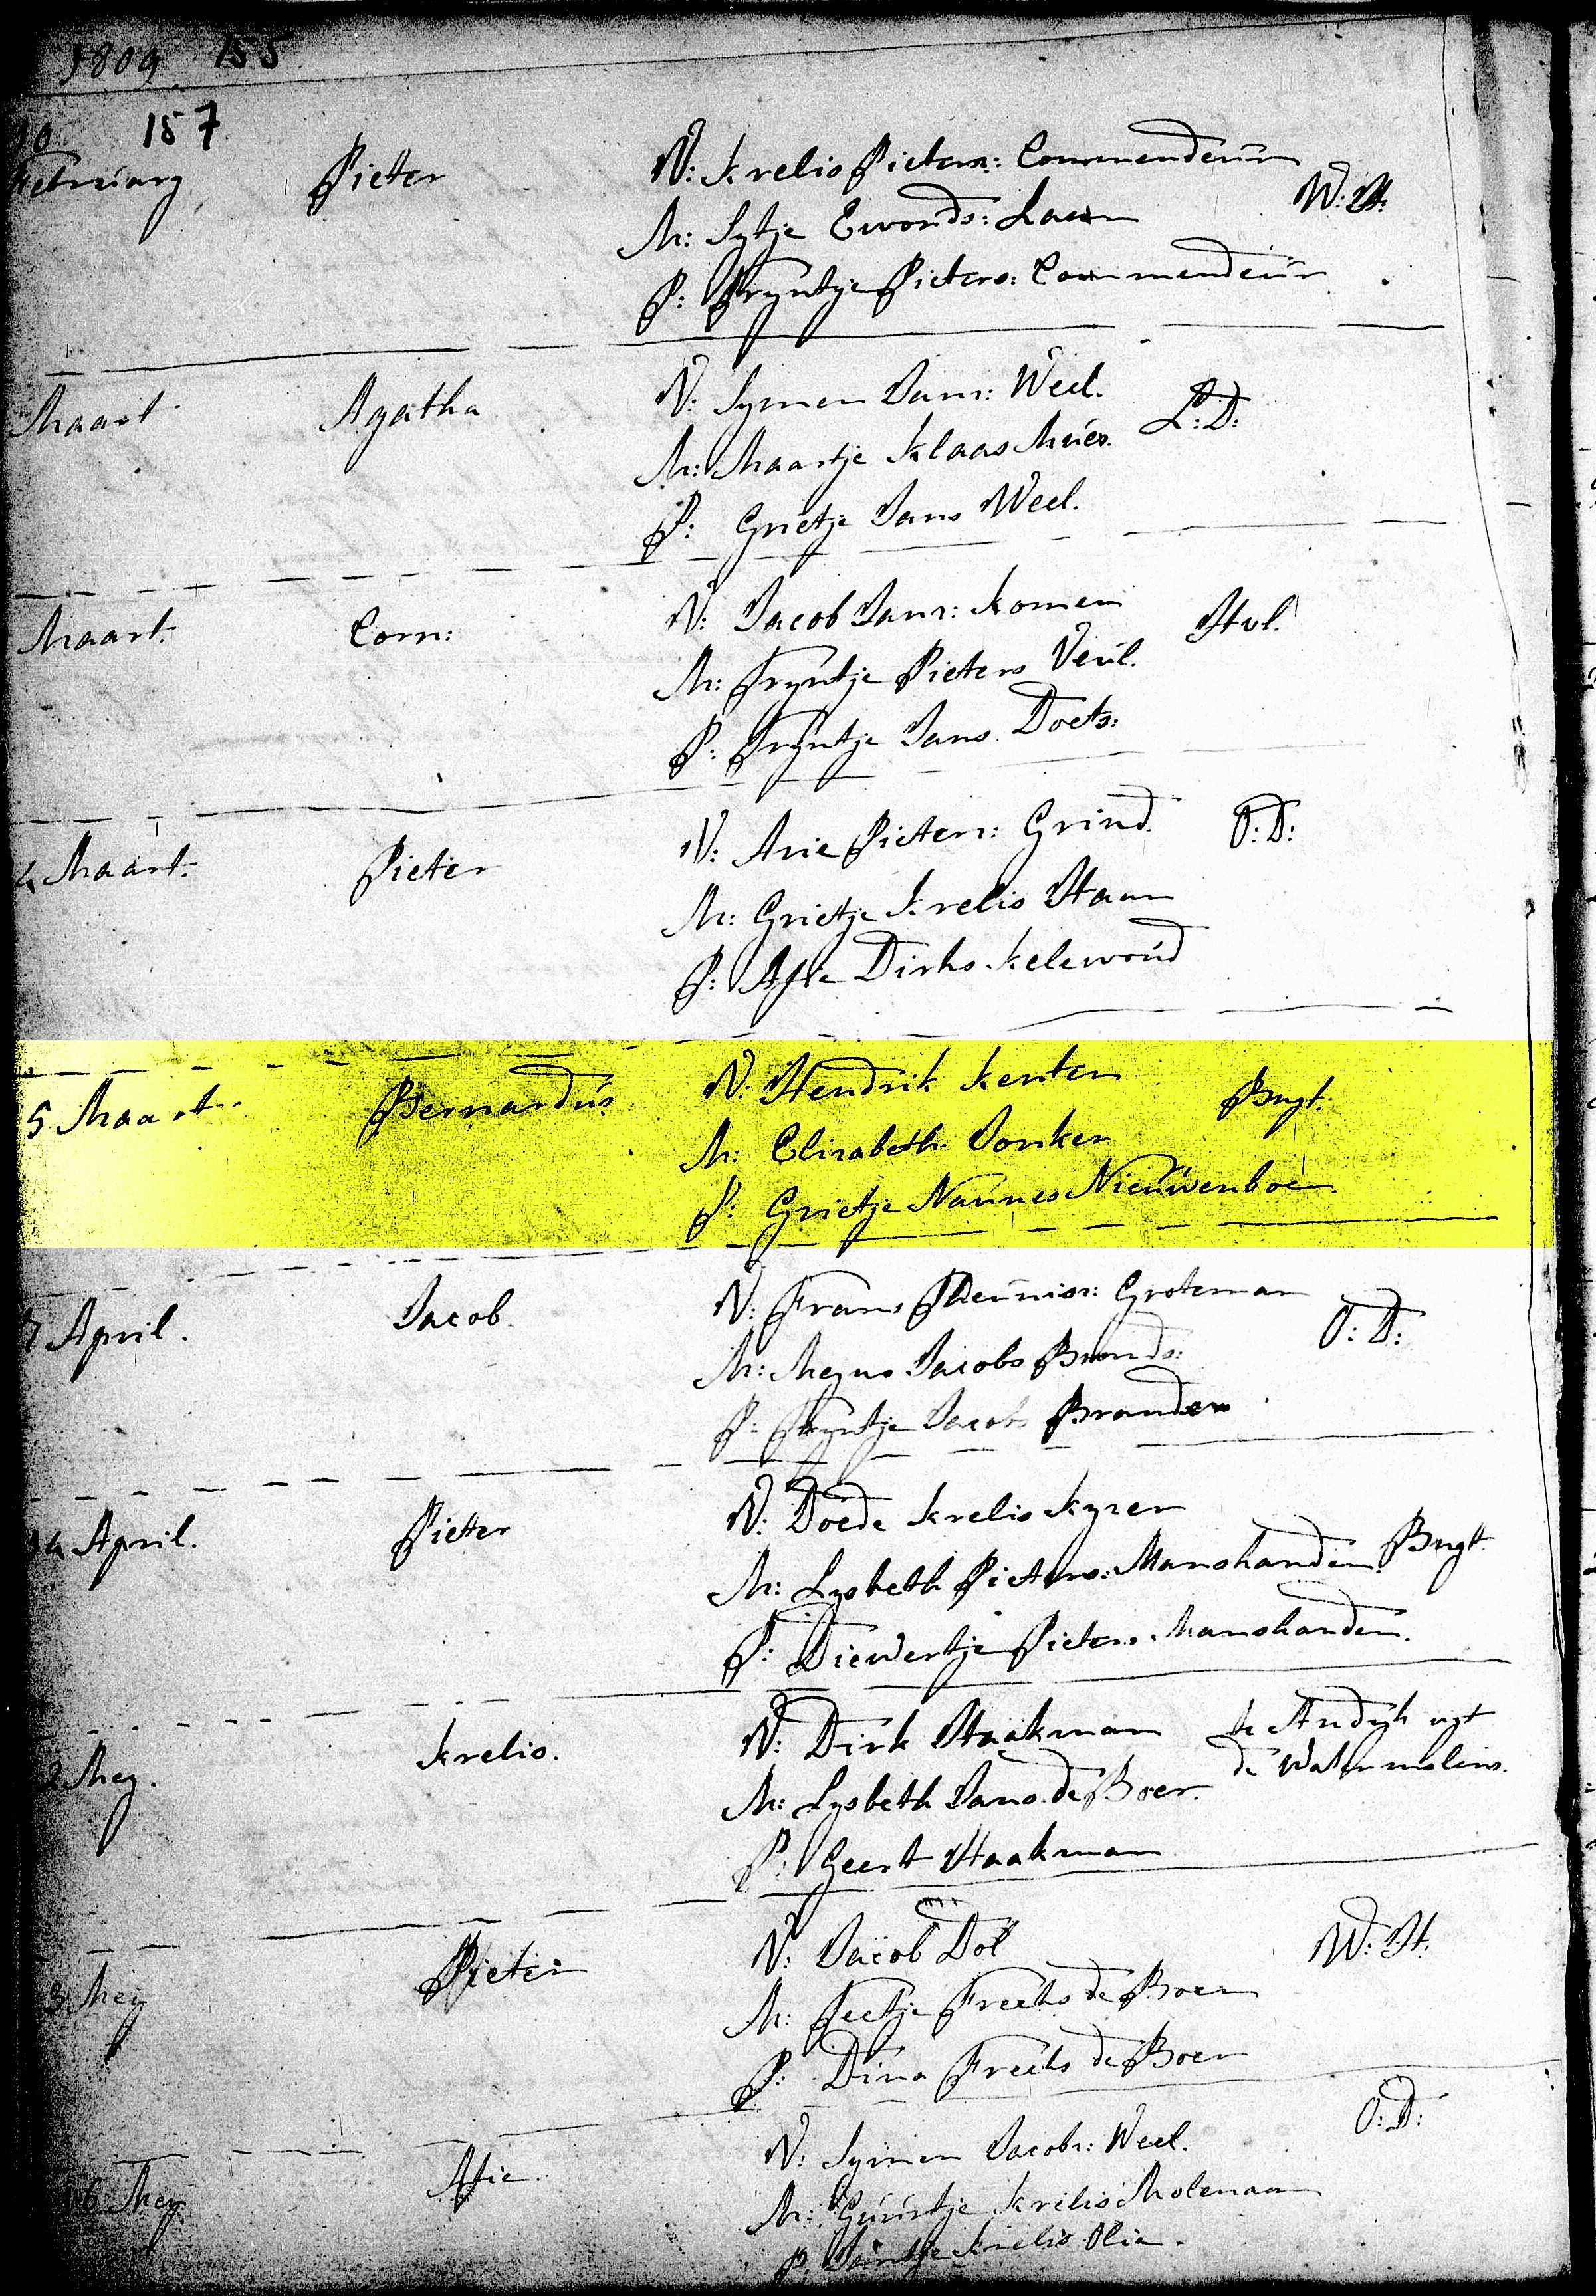 1809 155
157
10
February Pieter V: Krelis Pietersz: Commendeur
W: H:
M: Sytje Ewouds: Laan
P: Tryntje Pieters: Commendeur
Maart Agatha V: Symen Jansz: Weel.
L: D:
M: Maartje Klaas Mues.
P: Grietje Jans Weel.
Maart. Corn: V: Jacob Jansz: Komen
Hvl.
M: Tryntje Pieters Veul.
P: Tryntje Jans Doets:
Maart. Pieter V: Arie Pietersz: Grind.
O: D:
M: Grietje Krelis Haan
P: Afie Dirks
5 Maart. Bernardus V: Hendrik Kenter
Bngt.
M: Elizabeth Jonker
P: Grietje Nannes Nieuwenboer.
7 April. Jacob. V: Frans Theunisz: Groteman
O: D:
M: Jacobs Brands:
P: Tryntje Jacobs Brander
April. Pieter V: Doede Krelis Kyzer
Bngt
M: Lysbeth Pieters: Manshanden.
P: Diewertje Pieters Manshanden.
2 Mey. Krelis. V: Dirk Haakman
te Andyk agt
de Watermolens.
M: Lysbeth Jans de Boer.
P: Geert Haakman
3 Mey Pieter V: Jacob Dol
W: H:
M: Teetje Freeks de Boer
P: Dina Freeks de Boer
O: D:
6 Mey. Afie. V: Symen Jacobs: Weel.
M: Guurtje Krelis Molenaar
P: Jantje Krelis Olie.